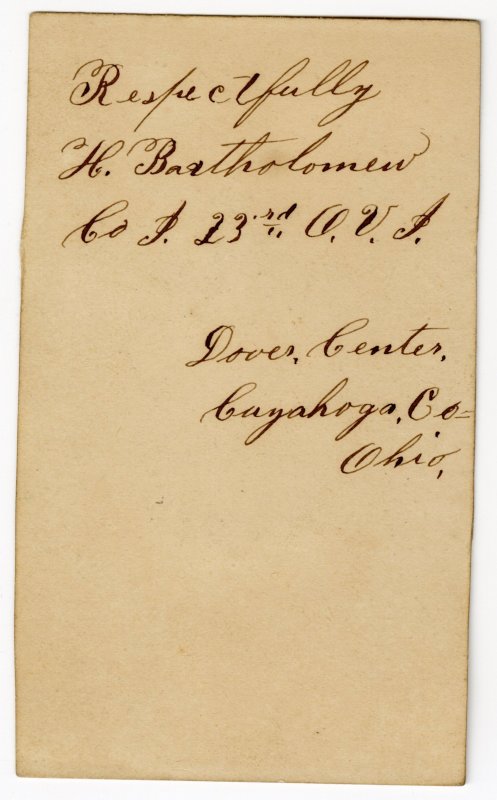 Respectfully
H. Bartholomew
Co I. 23rd O. V. I.
Dover, Center,
Cuyahoga, Co=
Ohio,